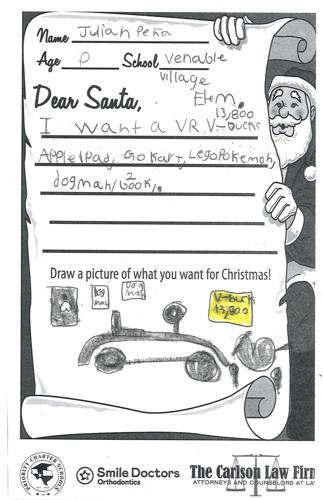 Name Juliah Peña
Age P School Venable
Village
Elem.
Dear Santa,
13,800
I want a VR V-bucks
Apple Ipad, Go kart, Lego Pokemon,
dogman/ 2 book/.
Draw a picture of what you want for Christmas!
Dog man
Dog man
V-bucks
13,800
PRIORITY CHARTER SCHOOLS
Smile Doctors
Orthodontics
The Carlson Law Firm
ATTORNEYS AND COUNSELORS AT LA